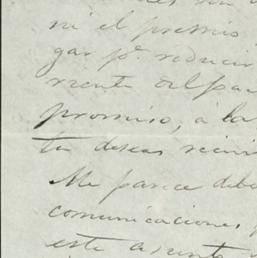 ni el premio
gar pª reducir
mente al pa
promiso, á la
tu deseas reci
Me parece debe
comunicaciones
este asunto